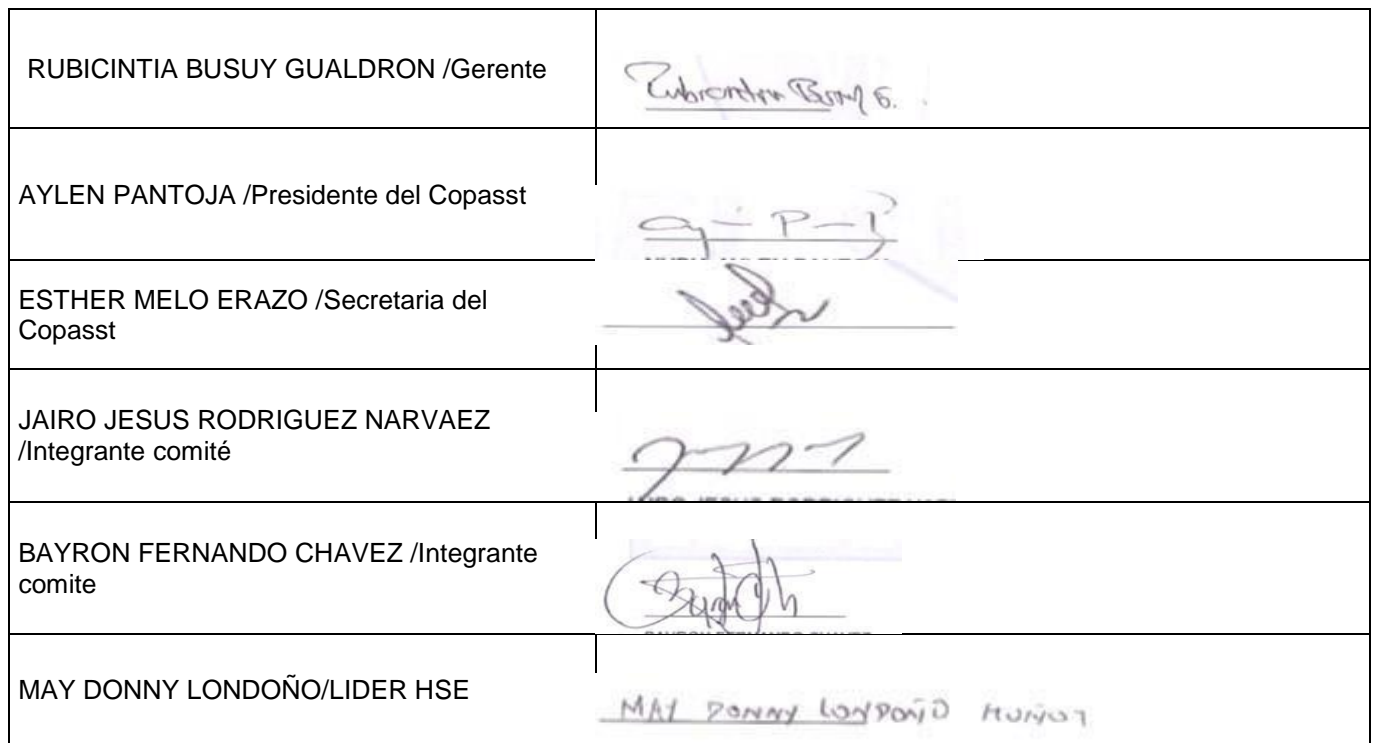 RUBICINTIA BUSUY GUALDRON /Gerente
AYLEN PANTOJA /Presidente del Copasst
ESTHER MELO ERAZO /Secretaria del
Copasst
JAIRO JESUS RODRIGUEZ NARVAEZ
/Integrante comité
BAYRON FERNANDO CHAVEZ /Integrante
comite
MAY DONNY LONDOÑO/LIDER HSE
MAY DONNY LONDOÑO MUÑOZ